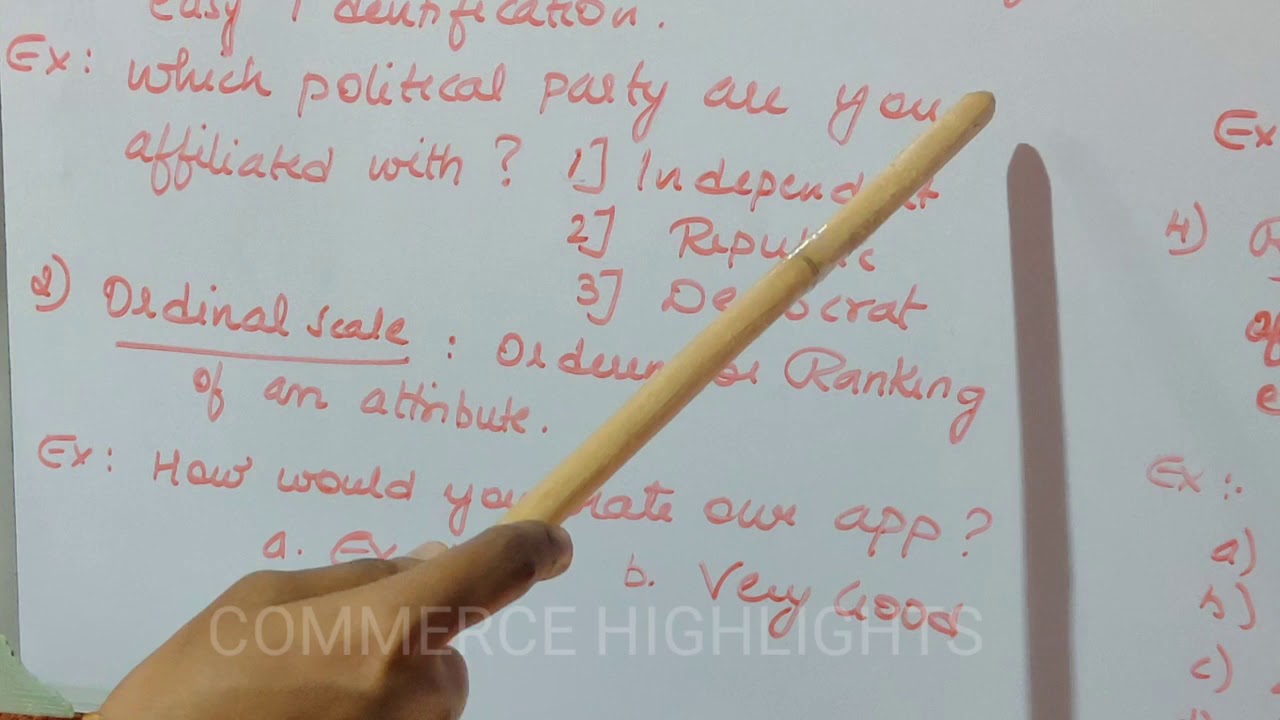 easy Identification.
Ex: which political party are you
affiliated with? 1] Independent
2] Republic
3] Democrat
2) Ordinal scale : Ordering or Ranking
of an attribute.
Ex: How would you rate our app?
a. Ex
b. Very Good
COMMERCE HIGHLIGHTS
Ex
4)
of
Ex:
a)
b)
c)